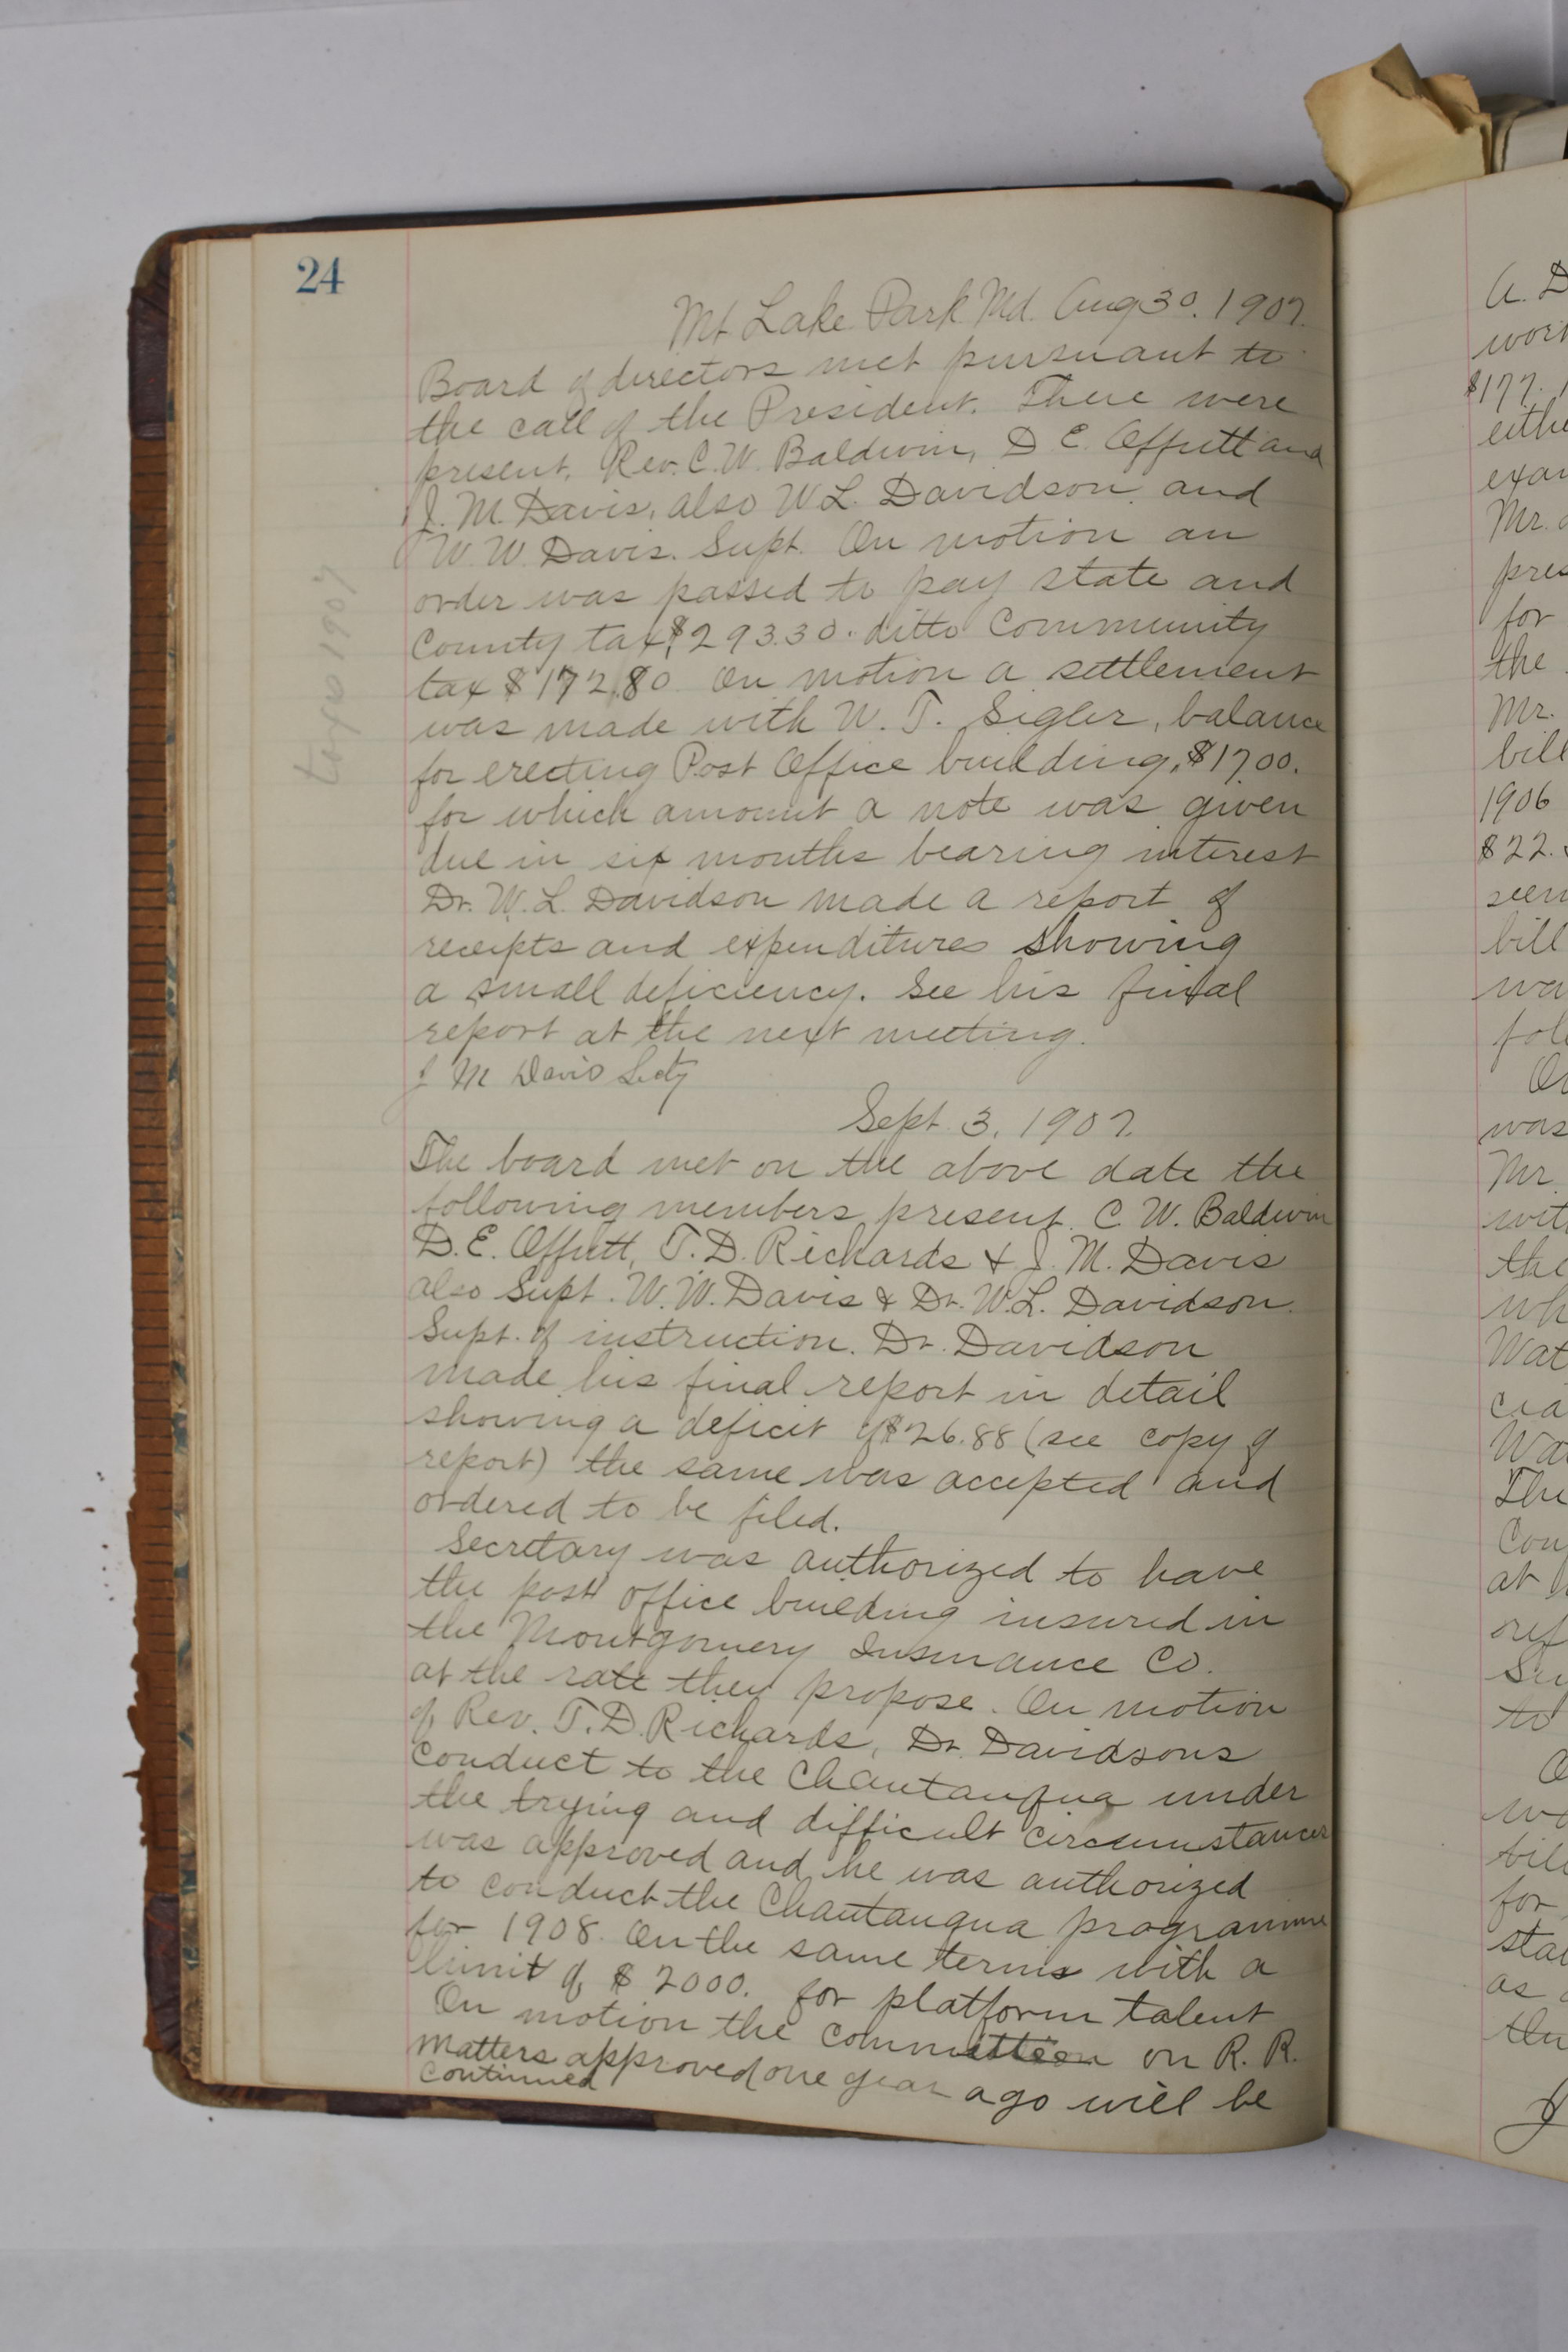 24
Mt Lake Park Md. Aug 30, 1907.
Board of directors met pursuant to
the call of the President. There were
present, Rev. C. W. Baldwin, D E. Offutt and
J. M. Davis, also W L. Davidson and
W. W. Davis. Supt. On motion an
order was passed to pay state and
County tax, $293.30. ditto Community
tax $172.80 On motion a settlement
was made with W. T. Sigler, balance
for erecting Post Office building, $1700.
for which amount a note was given
due in six months bearing interest
Dr. W. L. Davidson made a report of
receipts and expenditures showing
a small deficiency. See his final
report at the next meeting.
J M Davis Secty
Sept. 3, 1907.
The board met on the above date the
following members present. C. W. Baldwin
D. E. Offutt, T. D. Richards & J. M. Davis
also Supt. W. W. Davis & Dr. W. L. Davidson.
Supt. of instruction. Dr. Davidson
made his final report in detail
showing a deficit of $26.88 (see copy of
report) the same was accepted and
ordered to be filed.
Secretary was authorized to have
the post office building insured in
the Montgomery Insurance Co.
at the rate they propose. On motion
of Rev. T. D. Richards, Dr. Davidsons
conduct to the Chautauqua under
the trying and difficult circumstances
was approved and he was authorized
to conduct the Chautauqua programme
for 1908. On the same terms with a
limit of $2000. for platform talent
On motion the on R. R.
matters approved one year ago will be
continued
taxes 1907
A. D
$177.
Mr.
for
the
Mr.
bill
1906
$22.
bill
was
Mr.
the
at
to
for
as